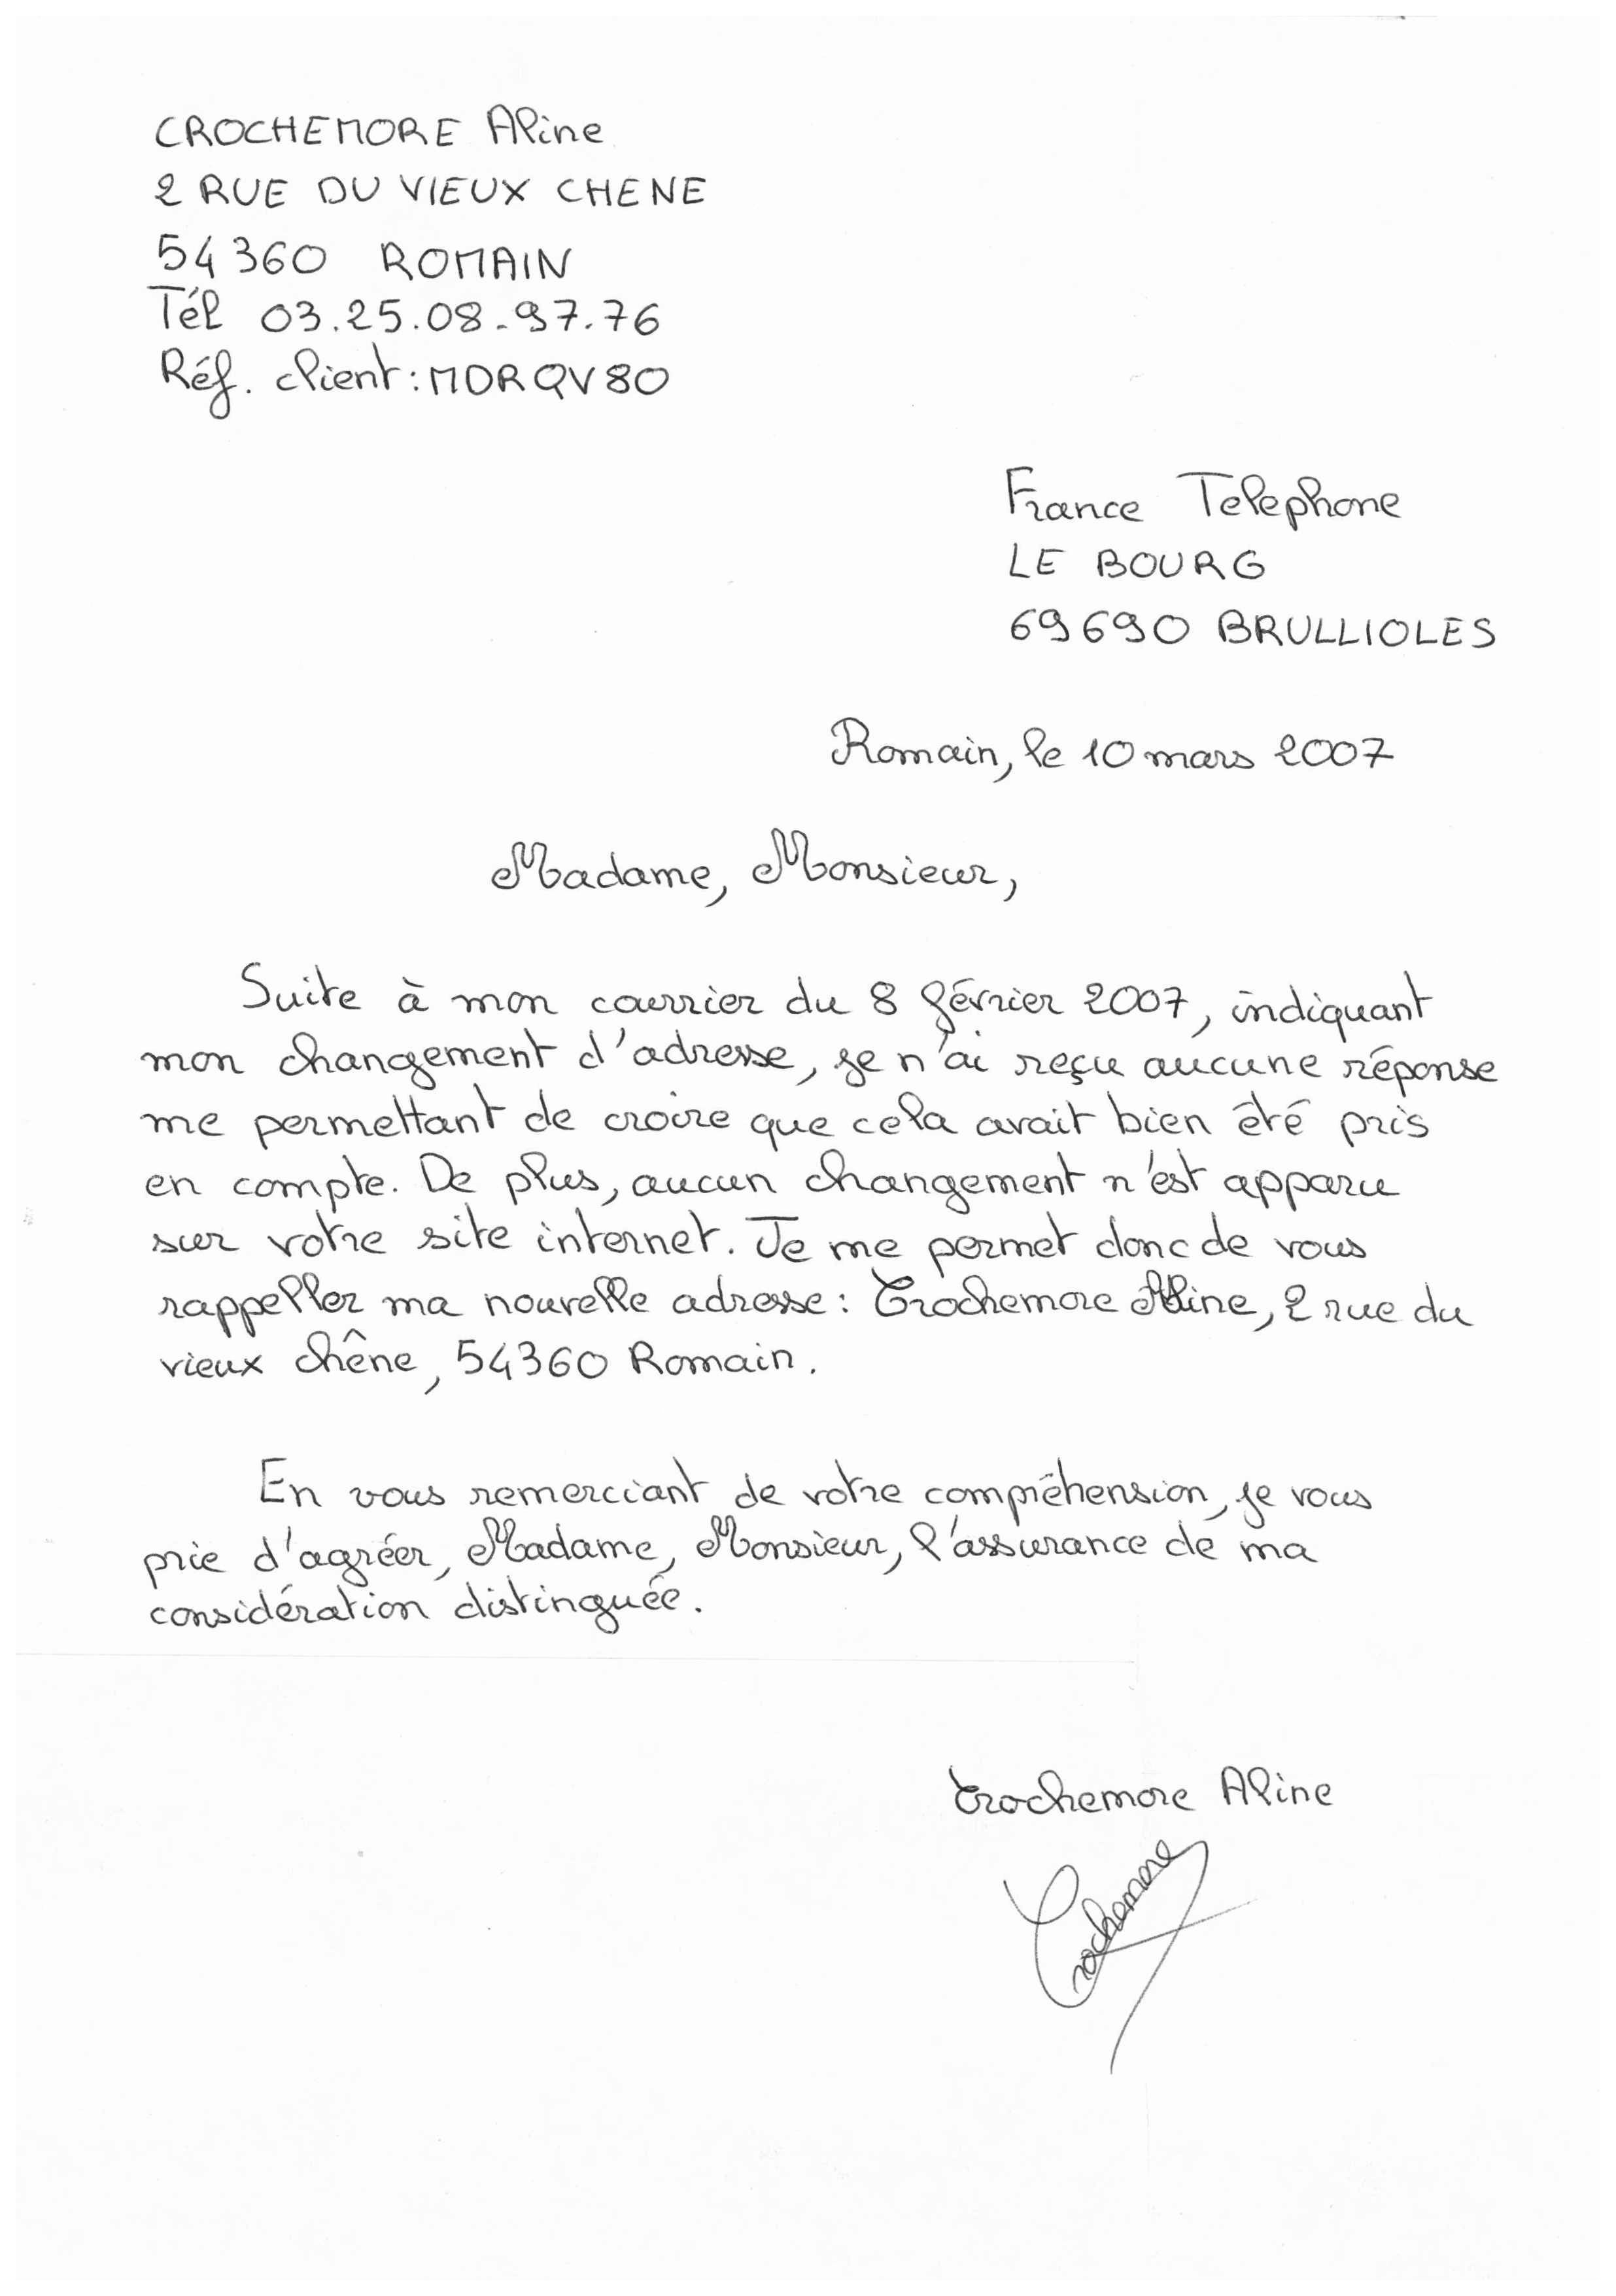 CROCHEMORE Aline
2 RUE DU VIEUX CHENE
54360 ROMAIN
Tél 03.25.08.97.76
Réf. client : MDRQV80
France Telephone
LE BOURG
69690 BRULLIOLES
Romain, le 10 mars 2007
Madame, Monsieur,
Suite à mon courrier du 8 février 2007, indiquant
mon changement d'adresse, je n'ai reçu aucune réponse
me permettant de croire que cela avait bien été pris
en compte. De plus, aucun changement n'est apparu
sur votre site internet. Je me permet donc de vous
rappeller ma nouvelle adresse : Crochemore Aline, 2 rue du
vieux chêne, 54360 Romain.
En vous remerciant de votre compréhension, je vous
prie d'agréer, Madame, Monsieur, l'assurance de ma
considération distinguée.
Crochemore Aline
Crochemore